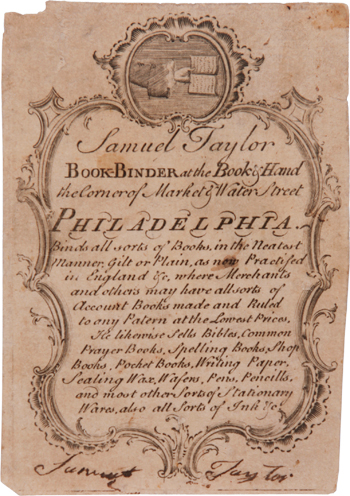 Samuel Taylor
BOOK-BINDER at the Book & Hand
the Corner of Market & Water Street
PHILADELPHIA.
Binds all sorts of Books, in the Neatest
Manner, Gilt or Plain, as now Practised
in England &c, where Merchants
and others may have all sorts of
Account Books made and Ruled
to any Patern at the Lowest Prices.
He likewise Sells Bibles, Common
Prayer Books, Spelling Books, Shop
Books, Pocket Books, Writing Paper,
Sealing Wax, Wafers, Pens, Pencills.
and most other Sorts of Stationary
Wares, also all Sorts of Ink &c.
Samuel Taylor